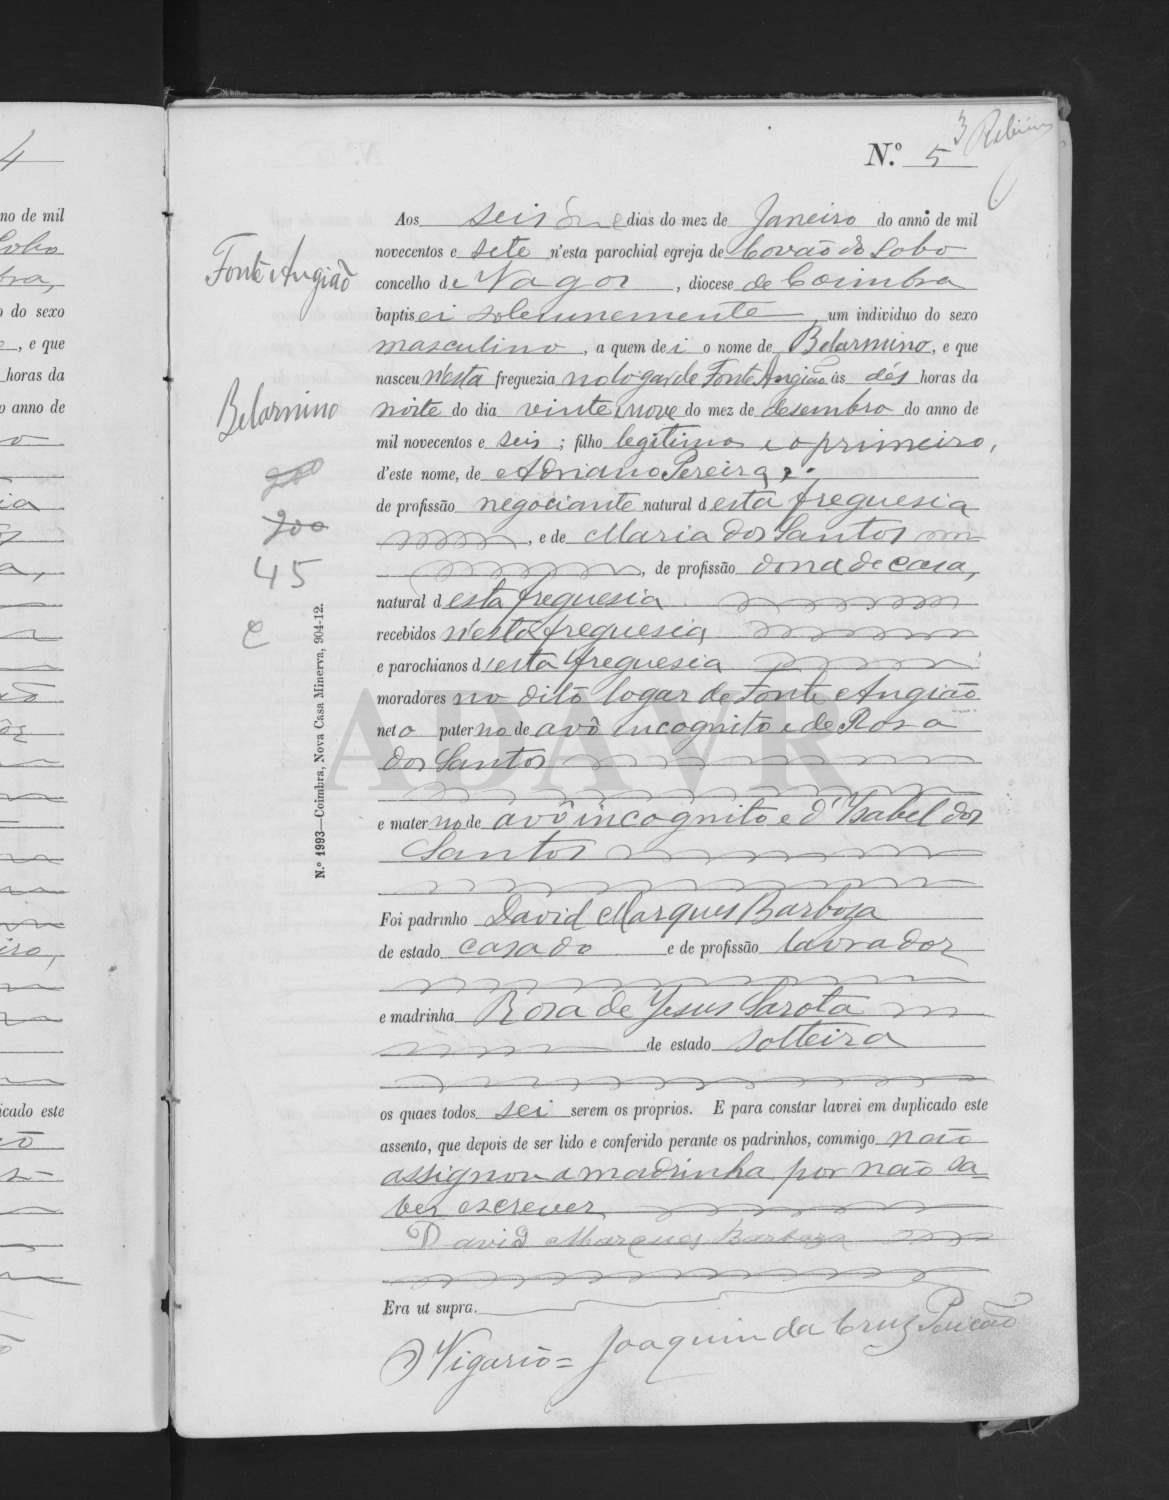 4
no de mil
Lobo
bra,
o do sexo
e, e que
horas da
o anno de
icado este
N.º 5
3
Fonte Angião
Belarmino
200
200
45
e
N.º 1993—Coimbra, Nova Casa Minerva, 904-12.
ADAVR
Aos seis dias do mez de Janeiro do anno de mil
novecentos e sete n'esta parochial egreja de Covão do Lobo
concelho de Vagos, diocese de Coimbra
baptisei solemnemente um individuo do sexo
masculino, a quem dei o nome de Belarmino, e que
nasceu n'esta freguezia no logar de Fonte Angião ás dés horas da
noite do dia vinte e nove do mez de desembro do anno de
mil novecentos e seis; filho legitimo e o primeiro,
d'este nome, de Adriano Pereira,
de profissão negociante natural d'esta freguesia
, e de Maria dos Santos
, de profissão dona de casa,
natural d'esta freguesia
recebidos n'esta freguesia
e parochianos d'esta freguesia
moradores no dito logar de Fonte Angião
neto paterno de avô incognito e de Rosa
dos Santos
e materno de avô incognito e d'Isabel dos
Santos
Foi padrinho David Marques Barboza
de estado casado e de profissão lavrador
e madrinha Rosa de Jesus Sarota
de estado solteira
os quaes todos sei serem os proprios. E para constar lavrei em duplicado este
assento, que depois de ser lido e conferido perante os padrinhos, commigo não
assignou a madrinha por não sa-
ber escrever
David Marques Barboza
Era ut supra.
O Vigario = Joaquim da Cruz